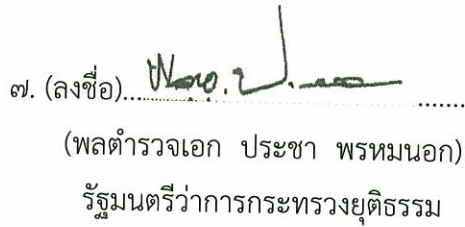 ๗. (ลงชื่อ)
(พลตำรวจเอก ประชา พรหมนอก)
รัฐมนตรีว่าการกระทรวงยุติธรรม